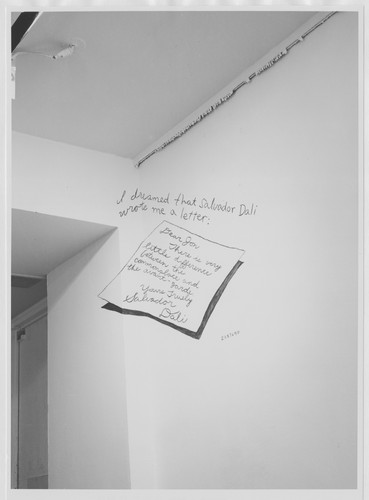 I dreamed that Salvador Dali
wrote me a letter:
Dear Jon,
There is very
little difference
between the
commonplace and
the avant-garde.
Yours Truly
Salvador
Dali